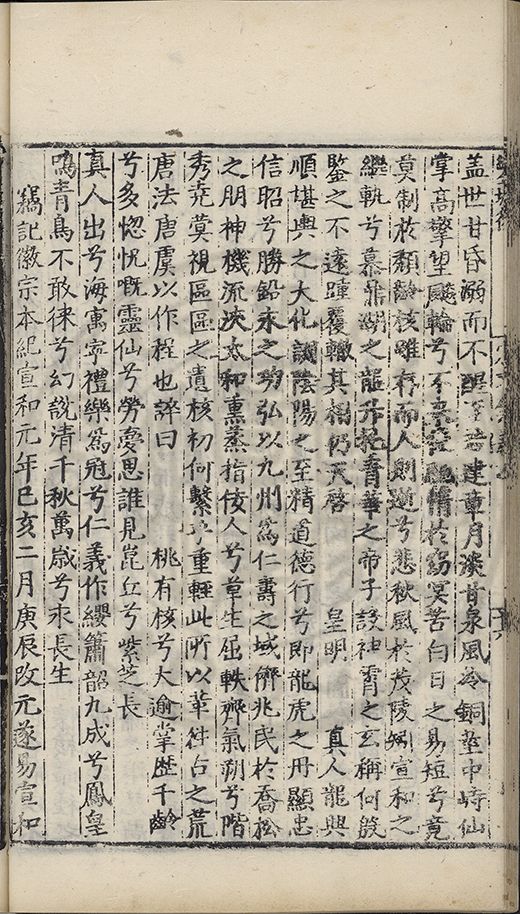 盖世甘昏溺而不醒至若建章月淡甘泉風冷銅臺中峙仙
掌高擎望飈輪兮不來空馳情於窈冥苦白日之易短兮竟
莫制於頹齡核雖存而人則逝兮悲秋風於茂陵矧宣和之
繼軌兮慕鼎湖之龍升托青華之帝子談神霄之玄稱何殷
鑒之不遠踵覆轍其相仍天啓 皇明 真人龍興
順堪輿之大化調陰陽之至精道德行兮即龍虎之丹顯忠
信昭兮勝鉛汞之功弘以九州為仁壽之域儕兆民於喬松
之朋神機流浹太和熏蒸指佞人兮草生屈軼齊氣朔兮階
秀堯蓂視區區之遺核初何繫乎重輕此所以革徃古之荒
唐法唐虞以作程也誶曰 桃有核兮大逾掌歷千齡
兮多惚怳嘅靈仙兮勞夢思誰見崑丘兮紫芝長
真人出兮海㝢寧禮樂為冠兮仁義作纓簫韶九成兮鳳皇
鳴青鳥不敢徠兮幻說清千秋萬歲兮永長生
竊記徽宗本紀宣和元年巳亥二月庚辰改元遂易宣和